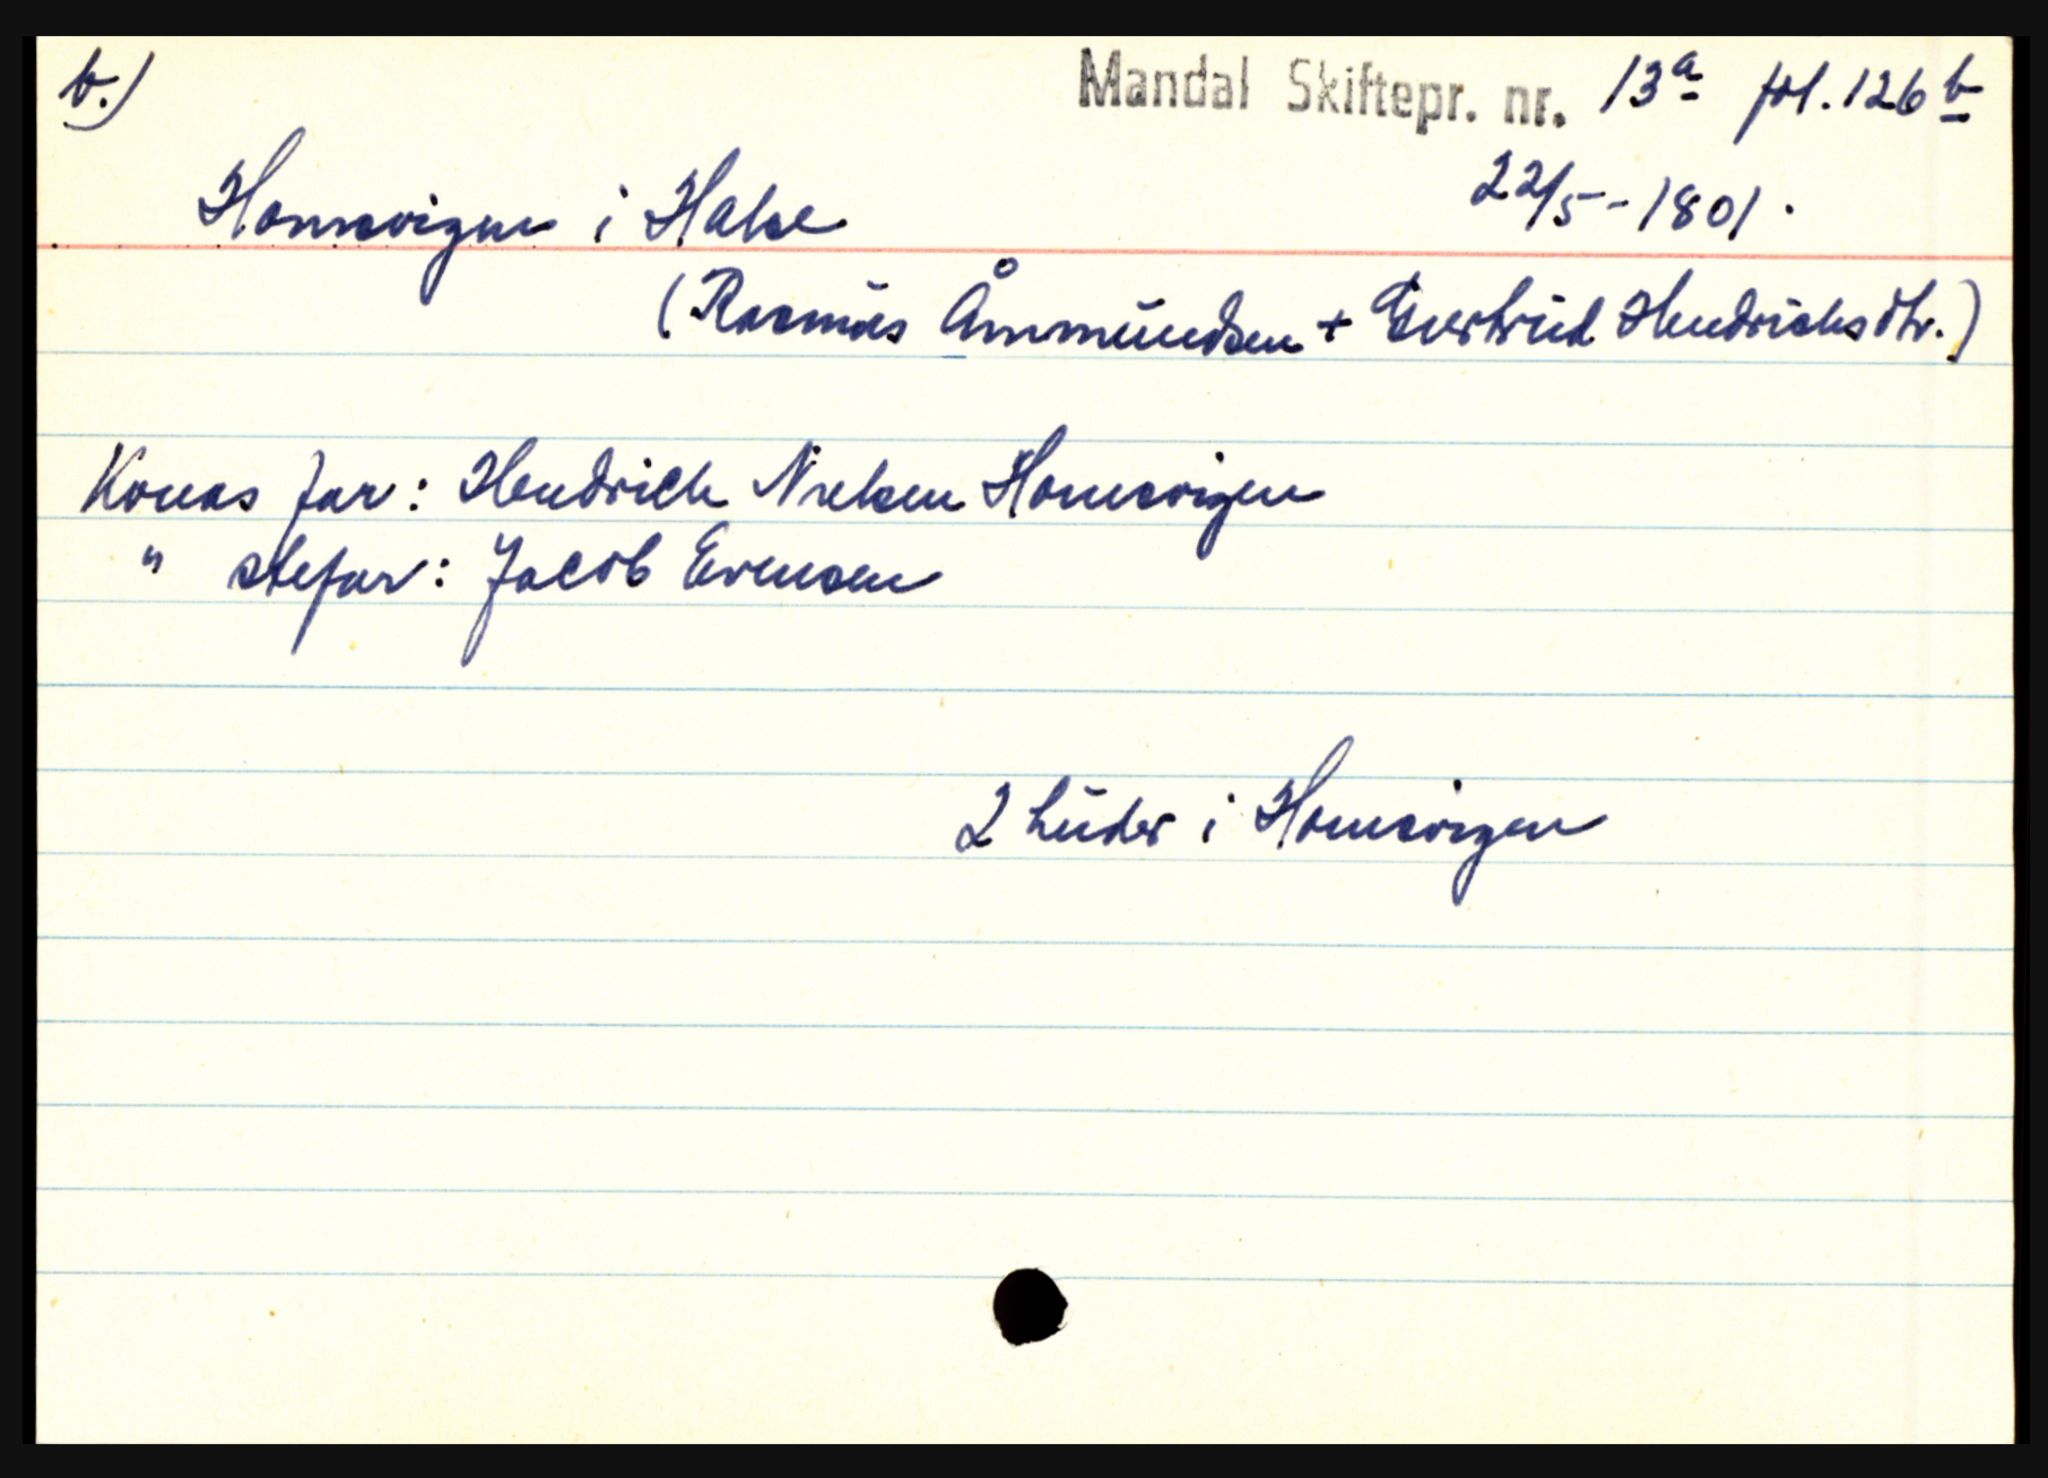 b.) Mandal Skiftepr. nr. 13a fol. 126b
22/5-1801.
Homsvigen i Halse
(Rasmus Åmmundsen + Giertrud Hendrichsdtr.)
Konas far: Hendrich Nielsen Homsvigen
" stefar: Jacob Evensen
2 huder i Homsvigen